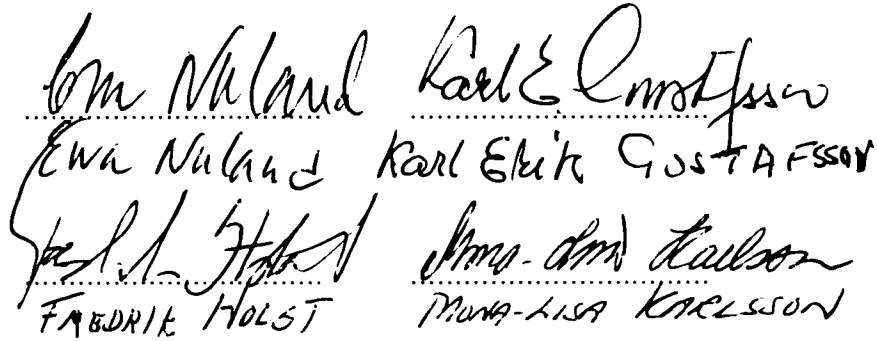 Ewa Nyland Karl E Gustafsson
Ewa Nyland Karl Erik GUSTAFSSON
Mona-Lisa Karlsson
FREDRIK HOLST MONA-LISA KARLSSON